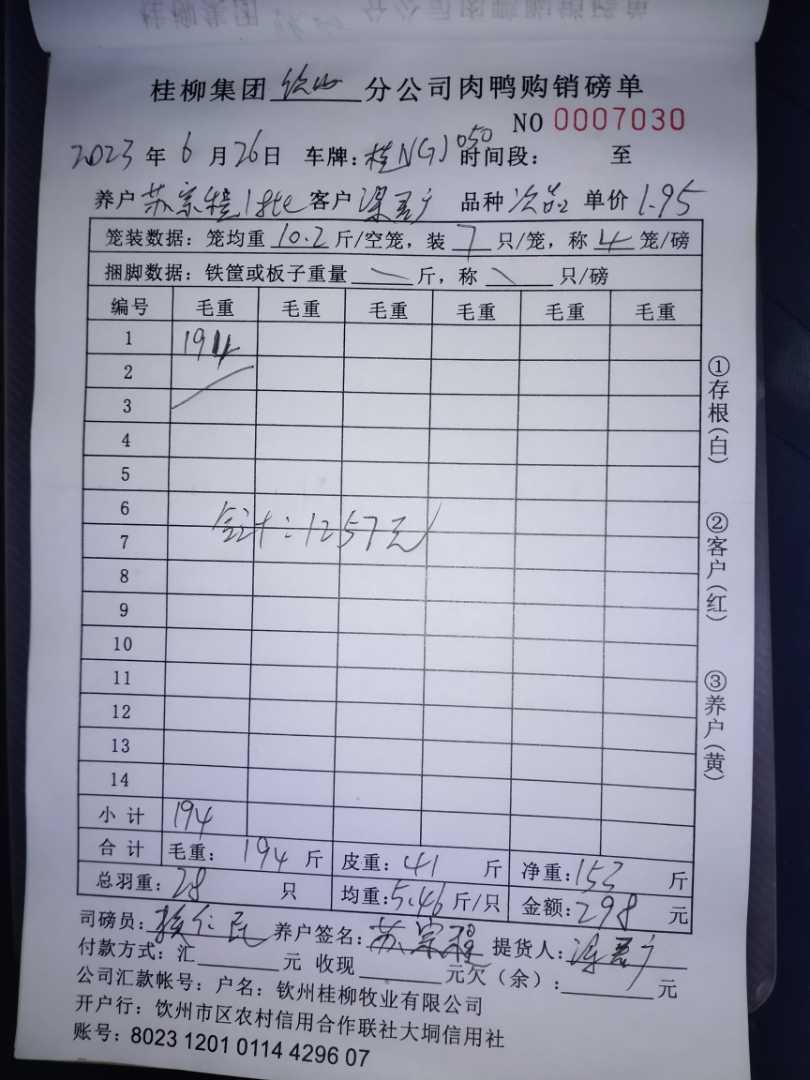 桂柳集团 钦山 分公司肉鸭购销磅单
NO 0007030
2023 年 6 月 26 日 车牌: 桂NGJ050 时间段: 至
养户 苏宗程1批 客户 梁 广 品种 次品2 单价 1.95
笼装数据: 笼均重 10.2 斤/空笼, 装 7 只/笼, 称 4 笼/磅
捆脚数据: 铁筐或板子重量 斤, 称 只/磅
编号 毛重 毛重 毛重 毛重 毛重 毛重
1 194
2
3
4
5
6
合计: 1257元
7
8
9
10
11
12
13
14
小计 194
合计 毛重: 194 斤 皮重: 41 斤 净重: 153 斤
总羽重: 28 只 均重: 5.46 斤/只 金额: 298 元
司磅员: 仁民 养户签名: 苏宗程 提货人: 梁 广
付款方式: 汇 元 收现 元欠(余): 元
公司汇款帐号: 户名: 钦州桂柳牧业有限公司
开户行: 钦州市区农村信用合作联社大垌信用社
账号: 8023 1201 0114 4296 07
①存根(白)
②客户(红)
③养户(黄)